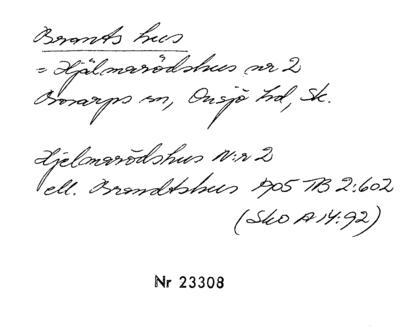 Brants hus
= Hjälmarödshus nr 2
Bosarps sn, Onsjö hd, Sk.
Hjelmarödshus N:r 2
ell. Brandtshus 1905 TB 2:602
(Sko A 14:92)
Nr 23308